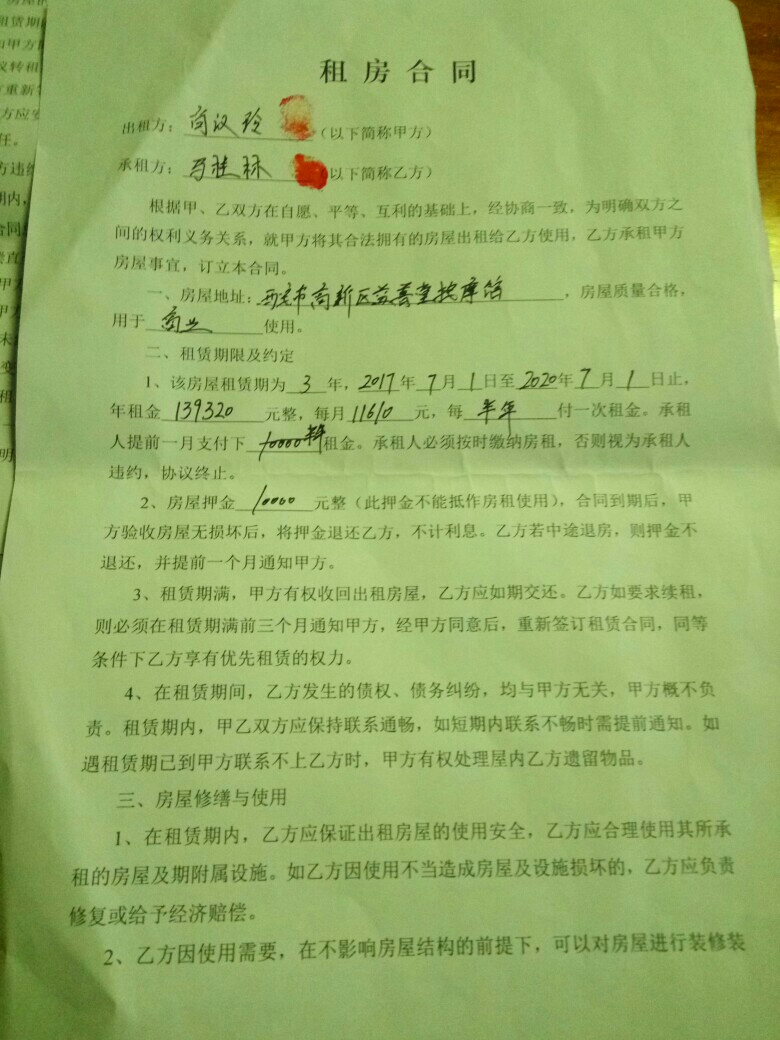 租房合同
出租方：尚汉玲（以下简称甲方）
承租方：马桂林（以下简称乙方）
根据甲、乙双方在自愿、平等、互利的基础上，经协商一致，为明确双方之
间的权利义务关系，就甲方将其合法拥有的房屋出租给乙方使用，乙方承租甲方
房屋事宜，订立本合同。
一、房屋地址：西安市高新区益善堂按摩馆，房屋质量合格，
用于商业使用。
二、租赁期限及约定
1、该房屋租赁期为3年，2017年7月1日至2020年7月1日止，
年租金139320元整，每月11610元，每半年付一次租金。承租
人提前一月支付下租金。承租人必须按时缴纳房租，否则视为承租人
违约，协议终止。
2、房屋押金10000元整（此押金不能抵作房租使用），合同到期后，甲
方验收房屋无损坏后，将押金退还乙方，不计利息。乙方若中途退房，则押金不
退还，并提前一个月通知甲方。
3、租赁期满，甲方有权收回出租房屋，乙方应如期交还。乙方如要求续租，
则必须在租赁期满前三个月通知甲方，经甲方同意后，重新签订租赁合同，同等
条件下乙方享有优先租赁的权力。
4、在租赁期间，乙方发生的债权、债务纠纷，均与甲方无关，甲方概不负
责。租赁期内，甲乙双方应保持联系通畅，如短期内联系不畅时需提前通知。如
遇租赁期已到甲方联系不上乙方时，甲方有权处理屋内乙方遗留物品。
三、房屋修缮与使用
1、在租赁期内，乙方应保证出租房屋的使用安全，乙方应合理使用其所承
租的房屋及期附属设施。如乙方因使用不当造成房屋及设施损坏的，乙方应负责
修复或给予经济赔偿。
2、乙方因使用需要，在不影响房屋结构的前提下，可以对房屋进行装修装